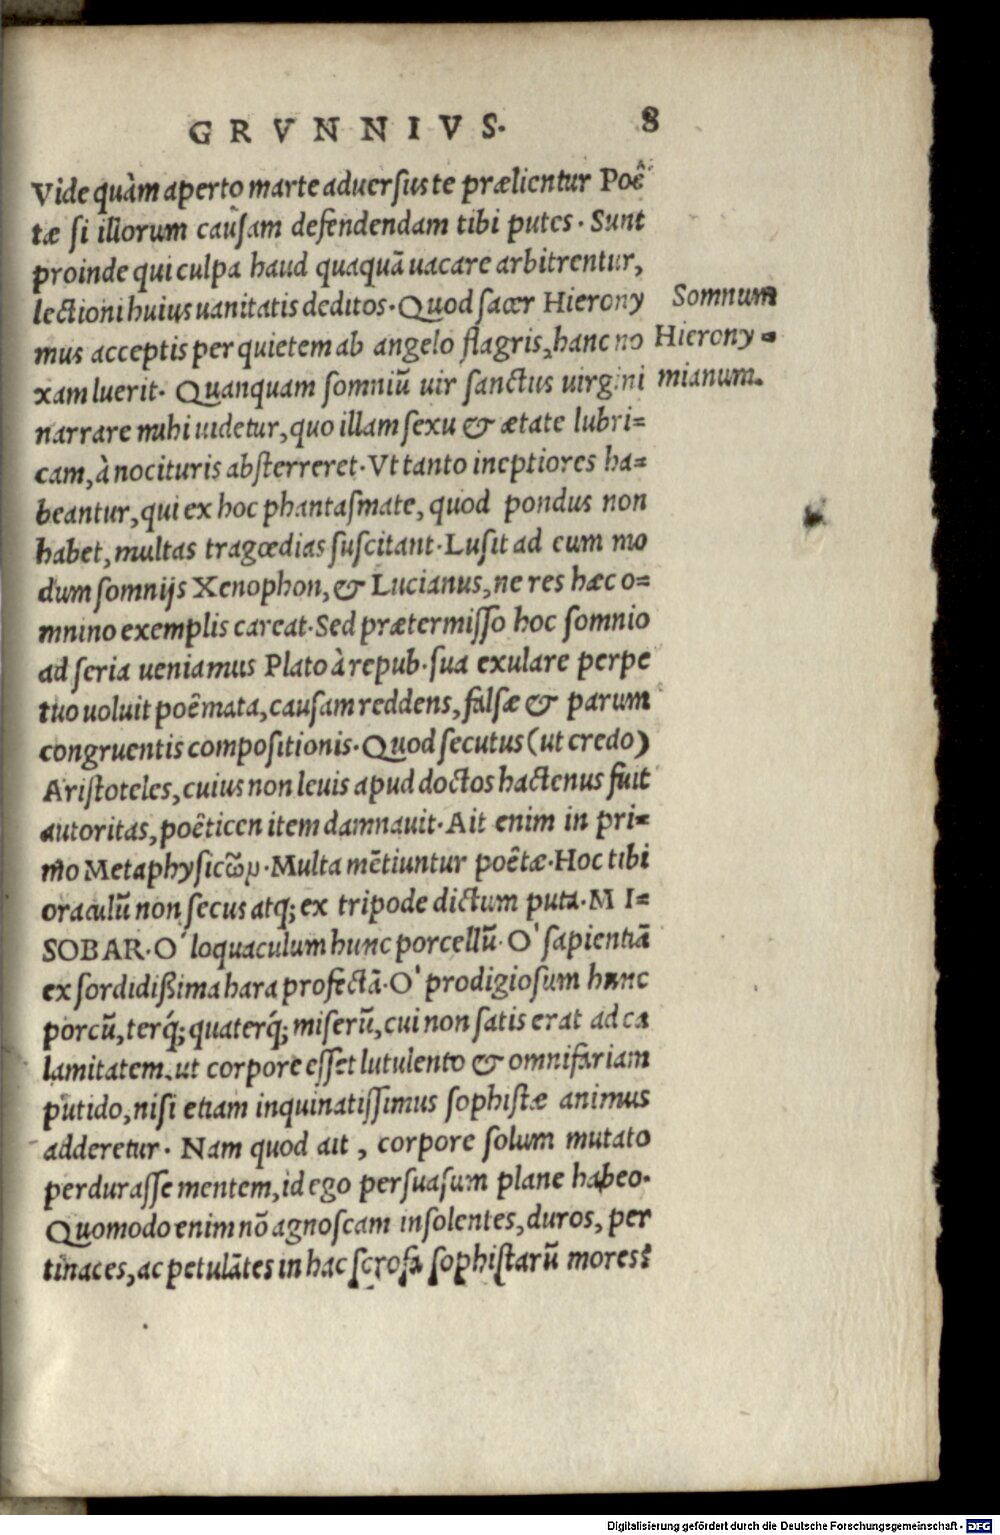 GRVNNIVS. 8
Vide quàm aperto marte aduersus te prælientur Poê
tæ si illorum causam defendendam tibi putes. Sunt
proinde qui culpa haud quaquã uacare arbitrentur,
lectioni huius uanitatis deditos. Quod sacer Hierony
mus acceptis per quietem ab angelo flagris, hanc no
xam luerit. Quanquam somniũ uir sanctus uirgini
narrare mihi uidetur, quo illam sexu & ætate lubri=
cam, à nocituris absterreret. Vt tanto ineptiores ha=
beantur, qui ex hoc phantasmate, quod pondus non
habet, multas tragœdias suscitant. Lusit ad eum mo
dum somnijs Xenophon, & Lucianus, ne res hæc o=
mnino exemplis careat. Sed prætermisso hoc somnio
ad seria ueniamus Plato à repub. sua exulare perpe
tuo uoluit poêmata, causam reddens, falsæ & parum
congruentis compositionis. Quod secutus (ut credo)
Aristoteles, cuius non leuis apud doctos hactenus fuit
autoritas, poêticen item damnauit. Ait enim in pri=
mo Metaphysicῶμ. Multa mẽtiuntur poêtæ. Hoc tibi
oraculũ non secus atq; ex tripode dictum puta. M I=
SOBAR. O' loquaculum hunc porcellũ. O' sapientiã
ex sordidißima hara profectã. O' prodigiosum hunc
porcũ, terq́; quaterq́; miserũ, cui non satis erat ad ca
lamitatem, ut corpore esset lutulento & omnifariam
putido, nisi etiam inquinatissimus sophistæ animus
adderetur. Nam quod ait, corpore solum mutato
perdurasse mentem, id ego persuasum plane habeo.
Quomodo enim nõ agnoscam insolentes, duros, per
tinaces, ac petulãtes in hac scrofa sophistarũ mores?
Somnum
Hierony=
mianum.
Digitalisierung gefördert durch die Deutsche Forschungsgemeinschaft - DFG